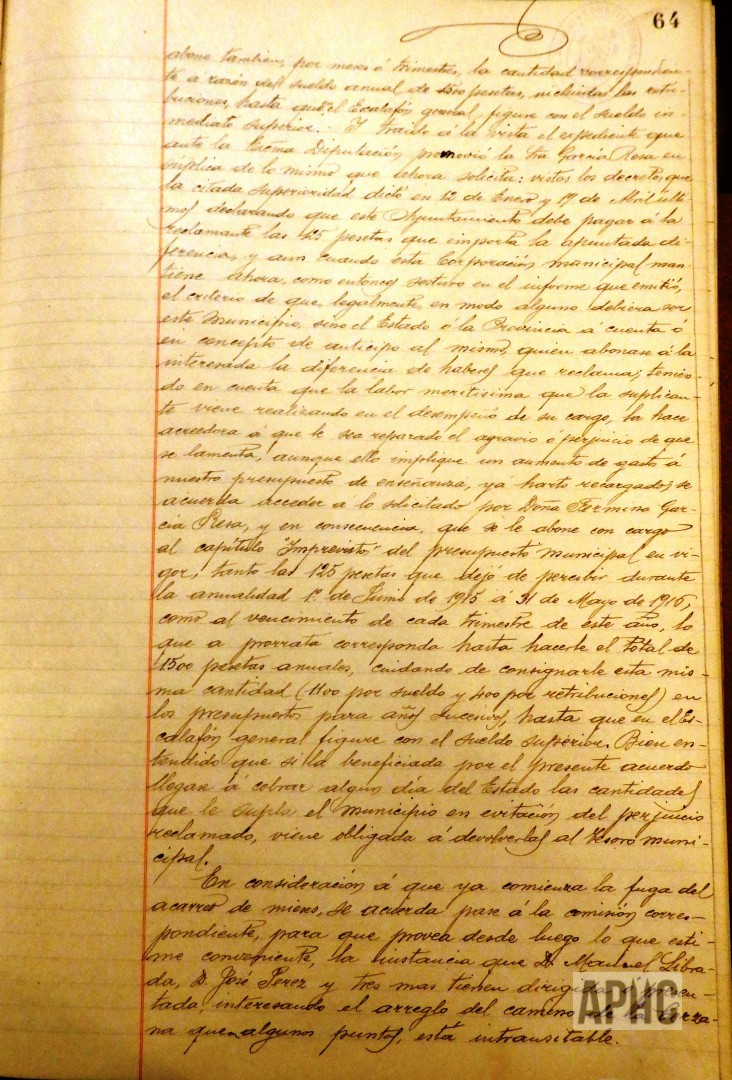 64
abone tambien, por meses ó trimestres, la cantidad correspondien-
te á razón del sueldo anual de 1500 pesetas, incluidas las retri-
buciones, hasta que en el Escalafón general, figure con el sueldo in-
mediato superior. - Y traido á la vista el expediente que
ante la Excma Diputación promovió la Sra García Rosa en
súplica de lo mismo que ahora solicita: vistos los decretos que
la citada Superioridad dictó en 12 de Enero y 19 de Abril últi-
mos declarando que este Ayuntamiento debe pagar á la
reclamante las 125 pesetas que importa la apuntada di-
ferencia, y aun cuando esta Corporación municipal man-
tiene ahora, como entonces sostuvo en el informe que emitió,
el criterio de que, legalmente, en modo alguno debiera ser
este Municipio, sino el Estado ó la Provincia á cuenta ó
en concepto de anticipo al mismo, quien abonase á la
interesada la diferencia de haberes que reclama; tenien-
do en cuenta que la labor meritisima que la suplican-
te viene realizando en el desempeño de su cargo, la hace
acreedora á que le sea reparado el agravio ó perjuicio de que
se lamenta, aunque ello implique un aumento de gasto á
nuestro presupuesto de enseñanza, yá harto recargado; se
acuerda acceder á lo solicitado por Doña Fermina Gar-
cía Rosa, y en consecuencia, que se le abone con cargo
al capítulo "Imprevistos" del presupuesto municipal en vi-
gor, tanto las 125 pesetas que dejó de percibir durante
la anualidad 1º de Junio de 1915 á 31 de Mayo de 1916,
como al vencimiento de cada trimestre de este año, lo
que a prorrata corresponda hasta hacerle el total de
1500 pesetas anuales, cuidando de consignarle esta mis-
ma cantidad (1100 por sueldo y 400 por retribuciones) en
los presupuestos para años sucesivos, hasta que en el Es-
calafón general figure con el sueldo superior. Bien en-
tendido que si la beneficiada por el presente acuerdo
llegase á cobrar algun día del Estado las cantidades
que le supla el Municipio en evitación del perjuicio
reclamado, viene obligada á devolverlas al Tesoro muni-
cipal.
En consideración á que ya comienza la fuga del
acarreo de mieses, se acuerda pase á la comisión corres-
pondiente, para que provea desde luego lo que esti-
me conveniente, la instancia que D. Manuel Libra-
da, D. José Perez y tres mas tienen dirigida y presen-
tada, interesando el arreglo del camino de la
na que en algunos puntos, está intransitable.
APHC